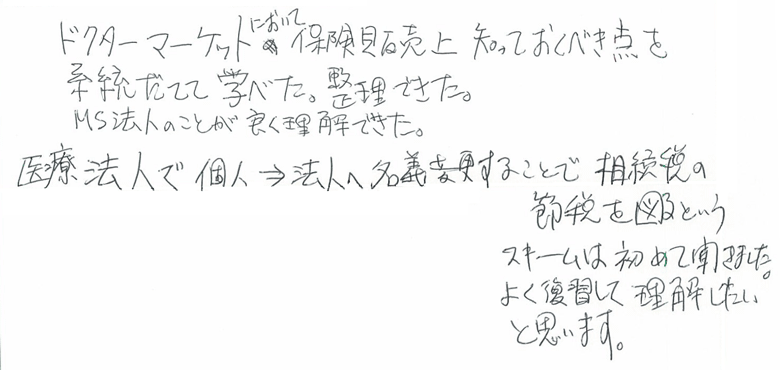 ドクターマーケットにおいて保険販売上 知っておくべき点を
系統だてて 学べた。整理できた。
MS法人のことが良く理解できた。
医療法人で 個人⇒法人へ名義変更することで 相続税の
節税を図るという
スキームは初めて聞きました。
よく復習して理解したい
と思います。